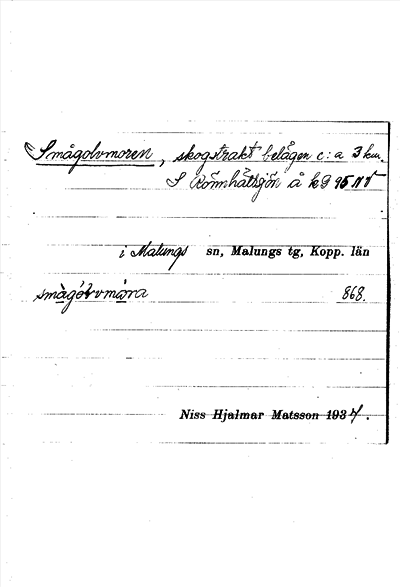 Smågolvmoren, skogstrakt belägen c:a 3 km.
S Römhåttsjön å kb 95 NV
i Malungs sn, Malungs tg, Kopp. län
smågólvmòra 868.
Niss Hjalmar Matsson 1934.